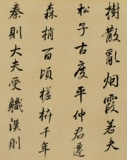 樹散亂烟霞若夫
松子古度平仲君遷
森梢百頃槎枿千年
秦則大夫受職漢則